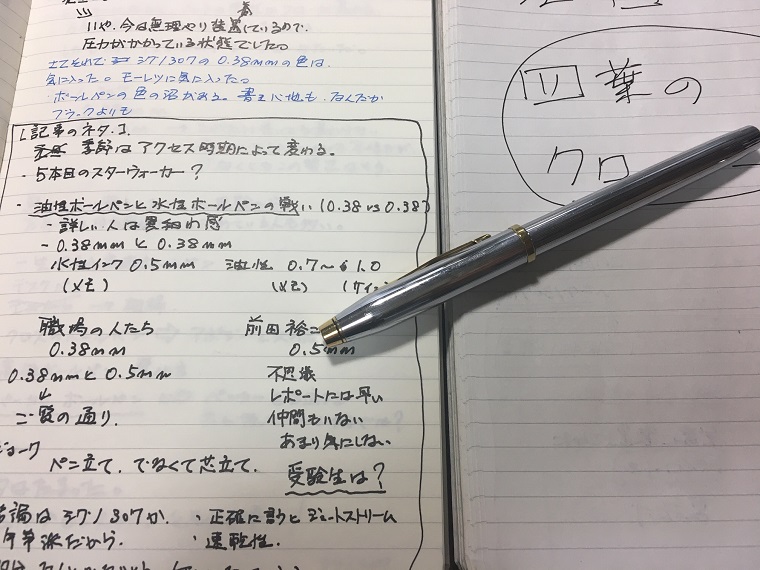 いや、今は無理やり装着しているので、
圧力がかかっている状態でした。
さてそれで シグノ307の0.38mmの色は、
気に入った。モーレツに気に入った。
ボールペンの色の沼がある。書き心地も、なんだか
ブラックよりも
記事のネタ.1.
季節はアクセス時期によって変わる。
・5本目のスターウォーカー?
・油性ボールペンと水性ボールペンの戦い(0.38 vs 0.38)
- 詳しい人は
- 0.38mmと0.38mm
水性インク 0.5mm 油性 0.7〜 1.0
(メモ) (メモ) (サイン
職場の人たち 前田裕二
0.38mm 0.5mm
0.38mmと0.5mm 不思議
↓ レポートには早い
ご覧の通り. 仲間もいない
あまり気にしない
ジョーク
ペン立て、でなくて芯立て. 受験生は?
結論はシグノ307か. ・正確に言うとジェットストリーム
だから. ・速乾性.
四葉の
クロ